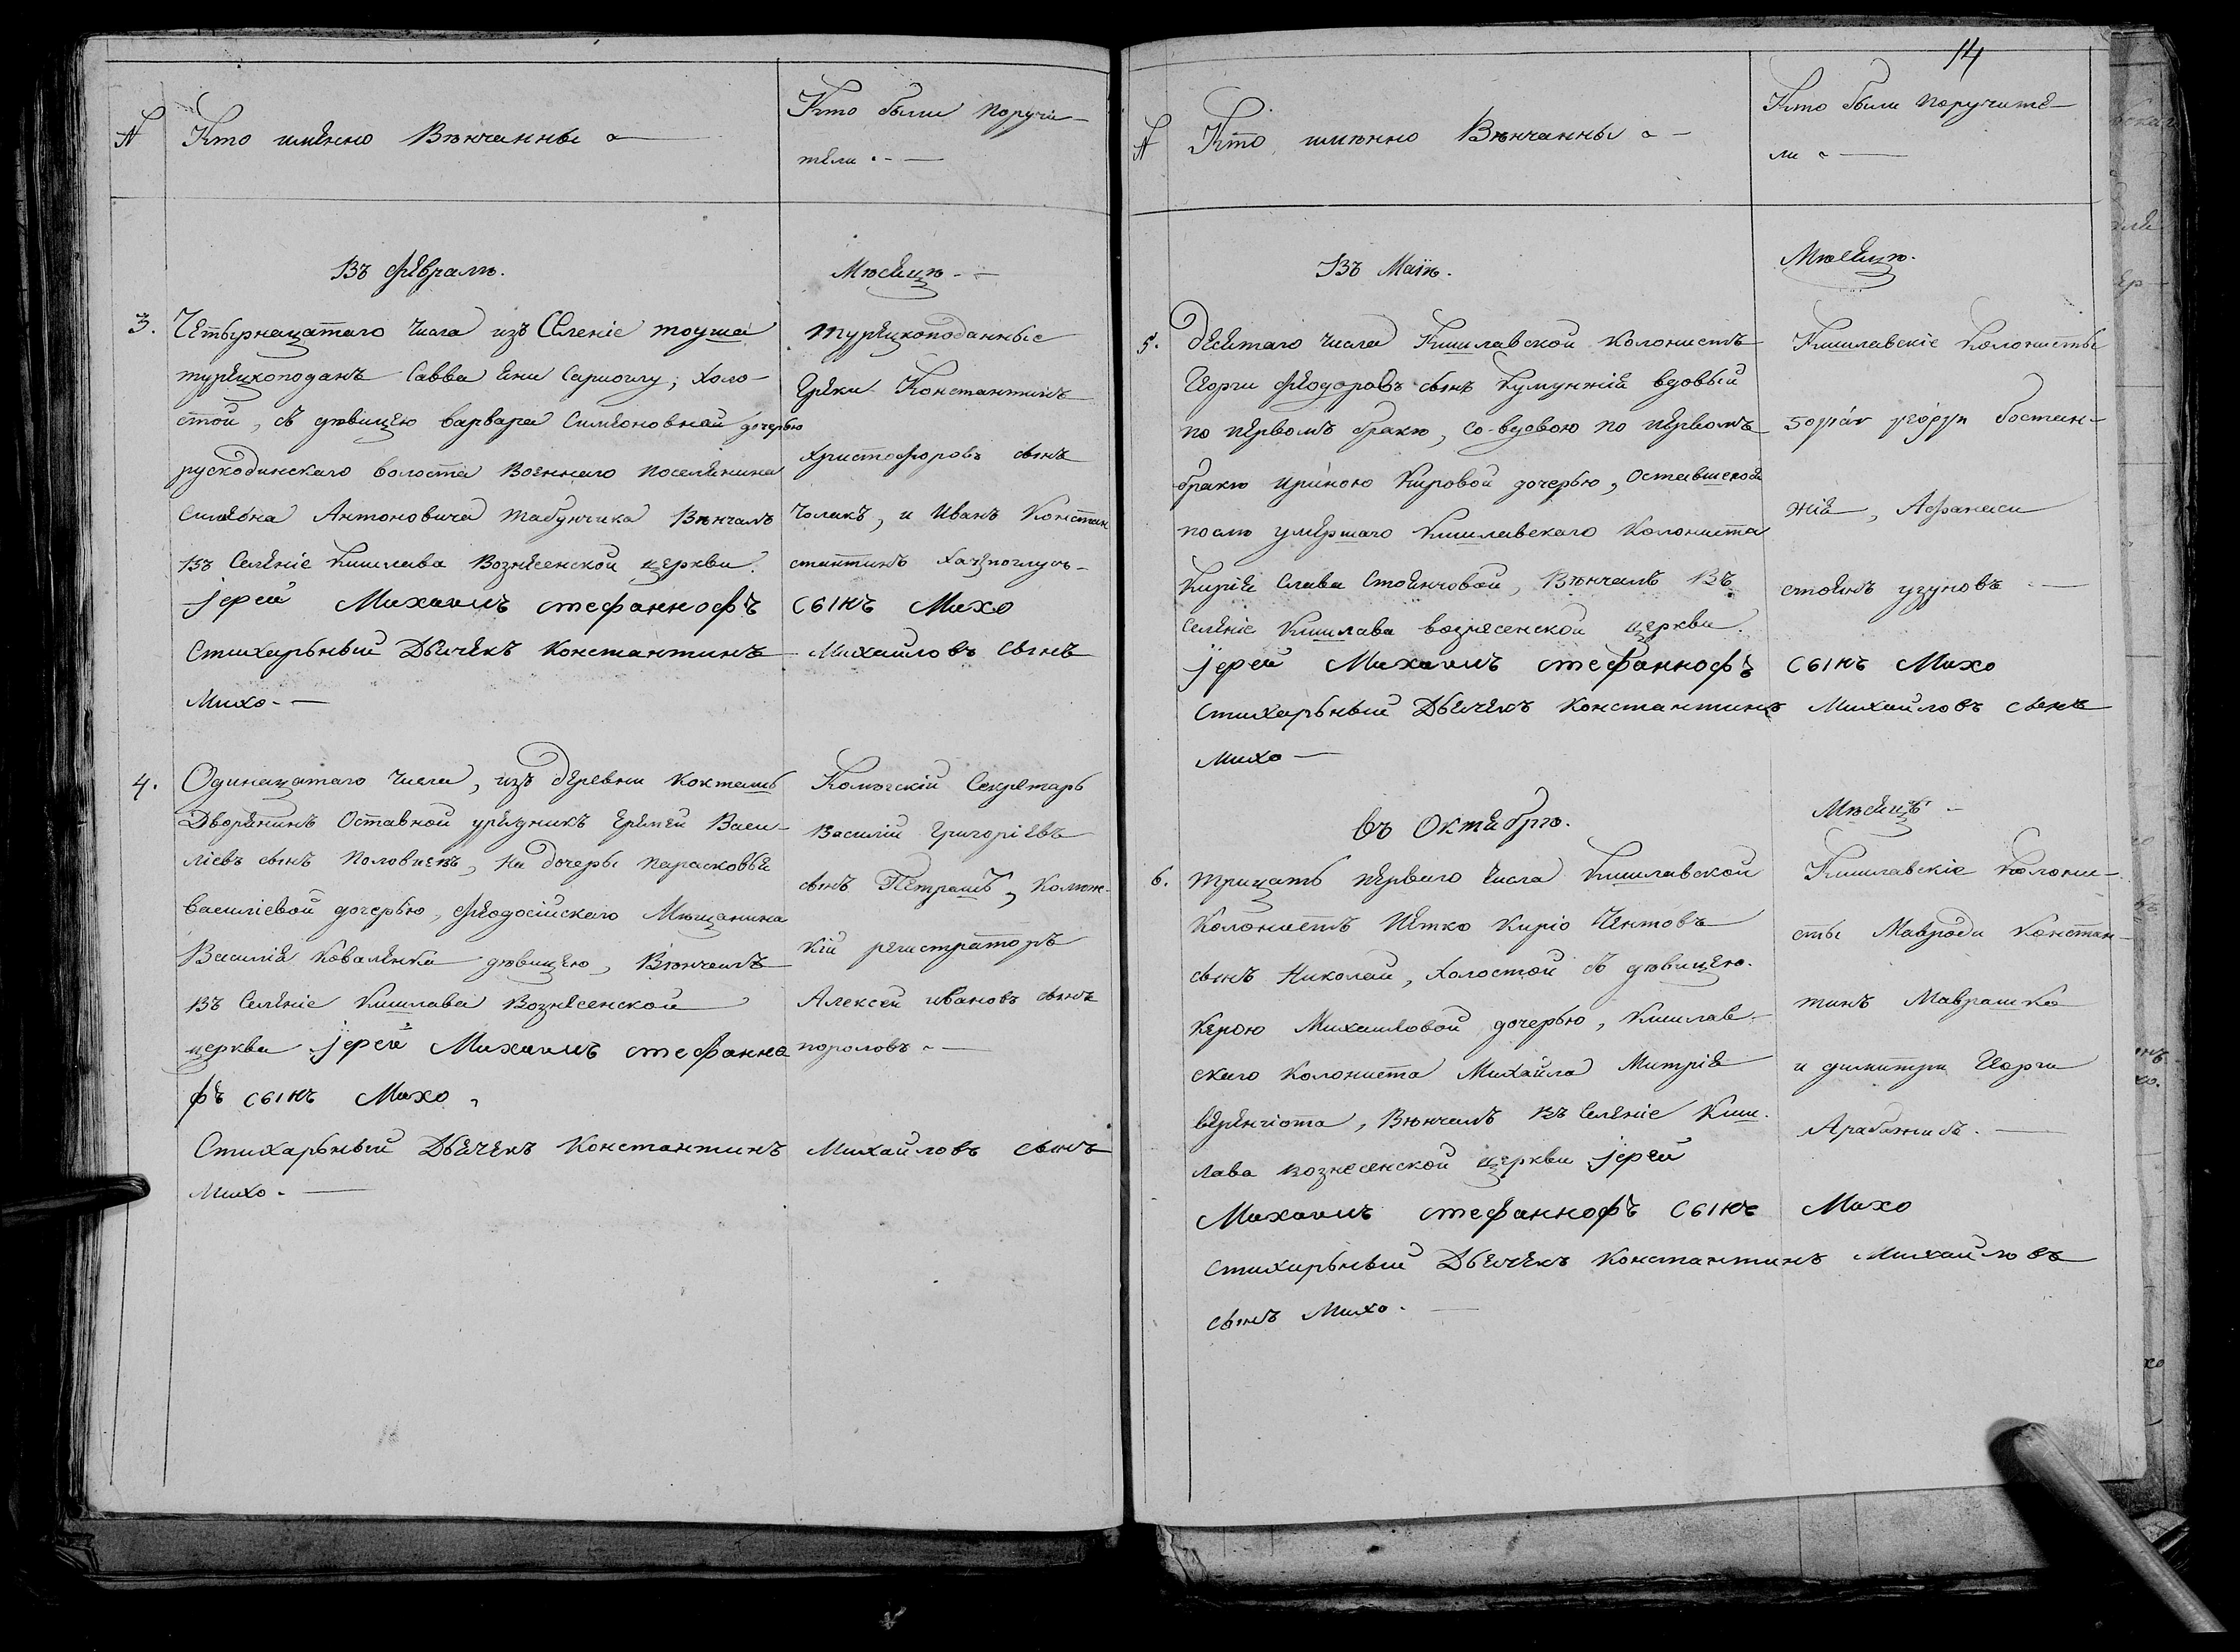 №
Кто имено Вѣнчанны
Кто были поручи-
тели
Въ феврале.
Мѣсецѣ
3. Четырнацатаго числа изъ Селеніе тоуша
турецкоподанъ Савва Ени Сариоглу, холо-
стой, съ дѣвицею варвара Симеоновной дочерью
рускодинскаго волоста Военнаго поселенина
Симеона Антоновича табунчика Вѣнчалъ
Въ Селеніе Кишлава Вознесенской церкви
Іерей Михаилъ стефаннофъ
Стихарьный Дьячекъ Константинъ
Михо
Турецкоподанные
Греки Константинъ
Христофоровъ сынъ
Чолакъ, и Иванъ Констан
стантинъ
сынъ Михо
Михайловъ Сынъ
4. Одинацатаго числа, изъ деревни Кокташь
Дворенинъ Оставной уредникъ Еремей Васи-
ліевъ сынъ Половъ, на дочерьі парасковьи
Василіевой дочерью, Феодосійскаго Мещанина
Василія Коваленка дѣвицею, Вѣнчалъ
Въ Селеніе Кишлава Вознесенской
церкви Іерей Михаилъ стефанно
фъ сынъ Михо
Стихарьный Дьячекъ Константинъ
Михо
Коложскій Секретарь
Василій Григоріевъ
сынъ Петрашъ, Колеж-
кій регистраторъ
Алексей ивановъ сынъ
пороловъ
Михайловъ сынъ
14
№
Кто имѣнно Вѣнчанны
Кто были поручите-
ли
Въ Маїѣ.
Мѣсецѣ.
5. Десятаго числа Кишлавской колонистъ
Георги Феодоровъ сынъ Кумунжій вдовый
по первомъ бракѣ, со вдовою по первомъ
бракѣ Ириною Кировой дочерью, Оставшейся
послѣ умершаго Кишлавскаго колониста
Кирія Слава Стоянчовой, Вѣнчалъ Въ
Селеніе Кишлава вознесенской церкви.
Іерей Михаилъ стефаннофъ
Стихарьный Дьячекъ Константинъ
Михо
Кишлавскіе Колонисты
γεόργη бостан-
жій, Афанаси
стоянъ узуновъ
сынъ Михо
Михайловъ сынъ
въ Октябрѣ.
Мѣсецъ
6. тридцать перваго числа Кишлавской
Колонистъ Петко Киріо Чентовъ
сынъ Николай, холостой съ дѣвицею
Керою Михаиловой дочерью, Кишлав-
скаго колониста Михайла Митріе
веренгіота, Вѣнчалъ Въ Селеніе Киш-
лава вознесенской церкви Іерей
Михаилъ стефаннофъ сынъ
Стихарьный Дьячекъ Константинъ
сынъ Михо.
Кишлавскіе Колони-
сты Мавроди Констан-
тинъ Маврашко
и димитри Георги
Арабажибъ.
Михо
Михайловъ